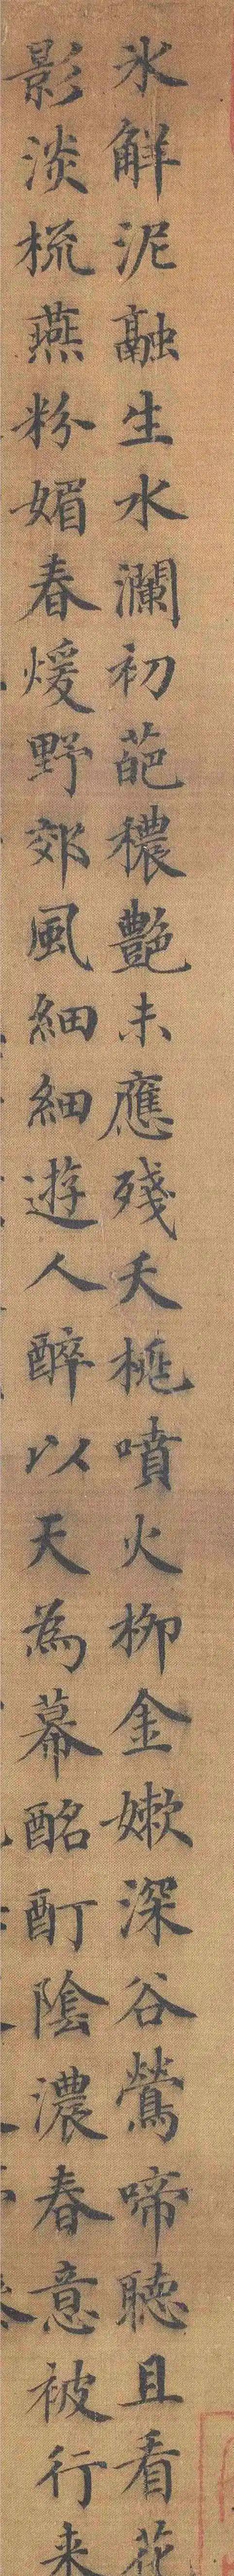 氷解泥融生水瀾初葩穠艶未應殘夭桃噴火柳金嫩深谷鶯啼聴且看花
影淡梳燕粉媚春煖野郊風細細遊人醉以天為幕酩酊陰濃春意被行来